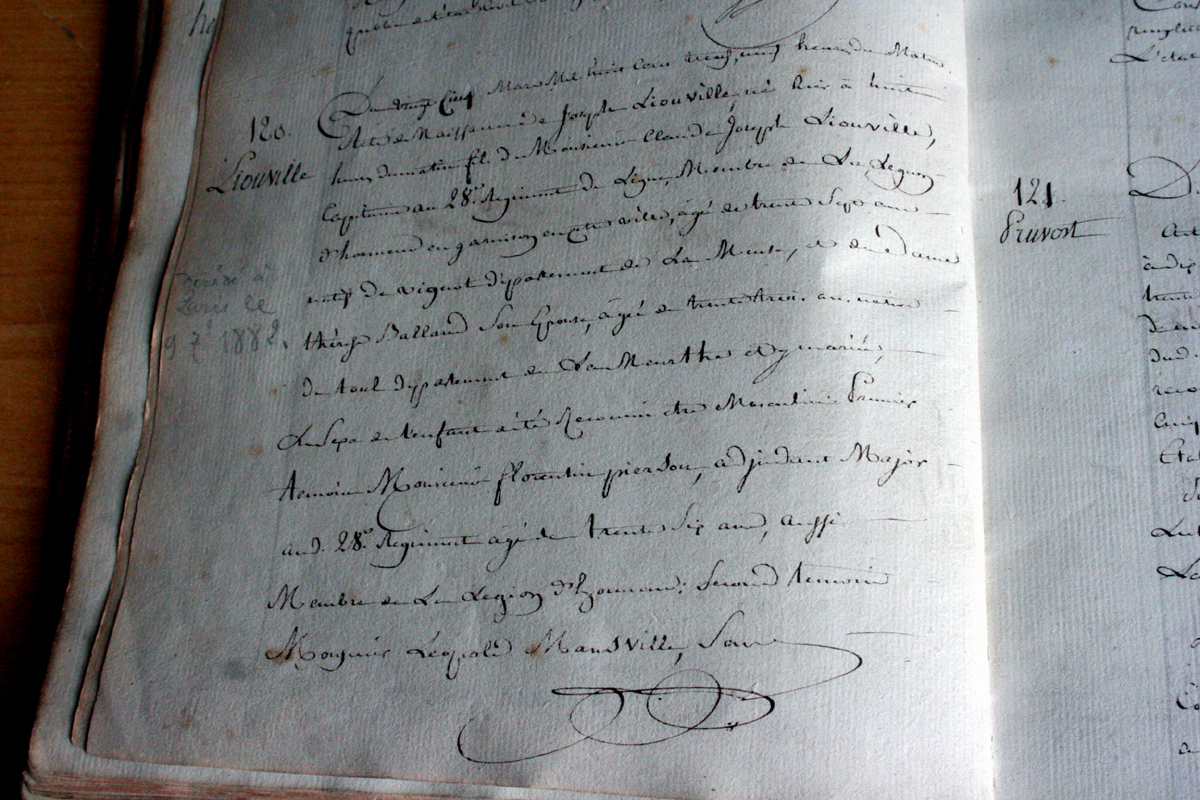 120.
Liouville
Du vingt Cinq Mars Mil huit Cent neuf, neuf heures du Matin
Acte de Naissance de Joseph Liouville, né hier à huit
heures du matin fils de Monsieur Claude Joseph Liouville,
Capitaine au 28e Régiment de Ligne, Membre de La Legion
d'honneur en garnison en cette ville, âgé de trente Sept ans
natif de vignot département de La Meuse, et de dame
thérèse Balland Son Epouse, âgée de trente trois ans native
de toul département de La Meurthe et y mariés,
Le Sexe de l'enfant a été Reconnu être Masculin. Premier
temoin Monsieur florentin pierson, adjudant Major
aud. 28e Regiment âgé de trente Six ans, aussi
Membre de La Legion d'honneur; Second temoin
Monsieur Léopold Mansville, Sous
décédé à
Paris le
9 7e 1882.
121.
Pruvost